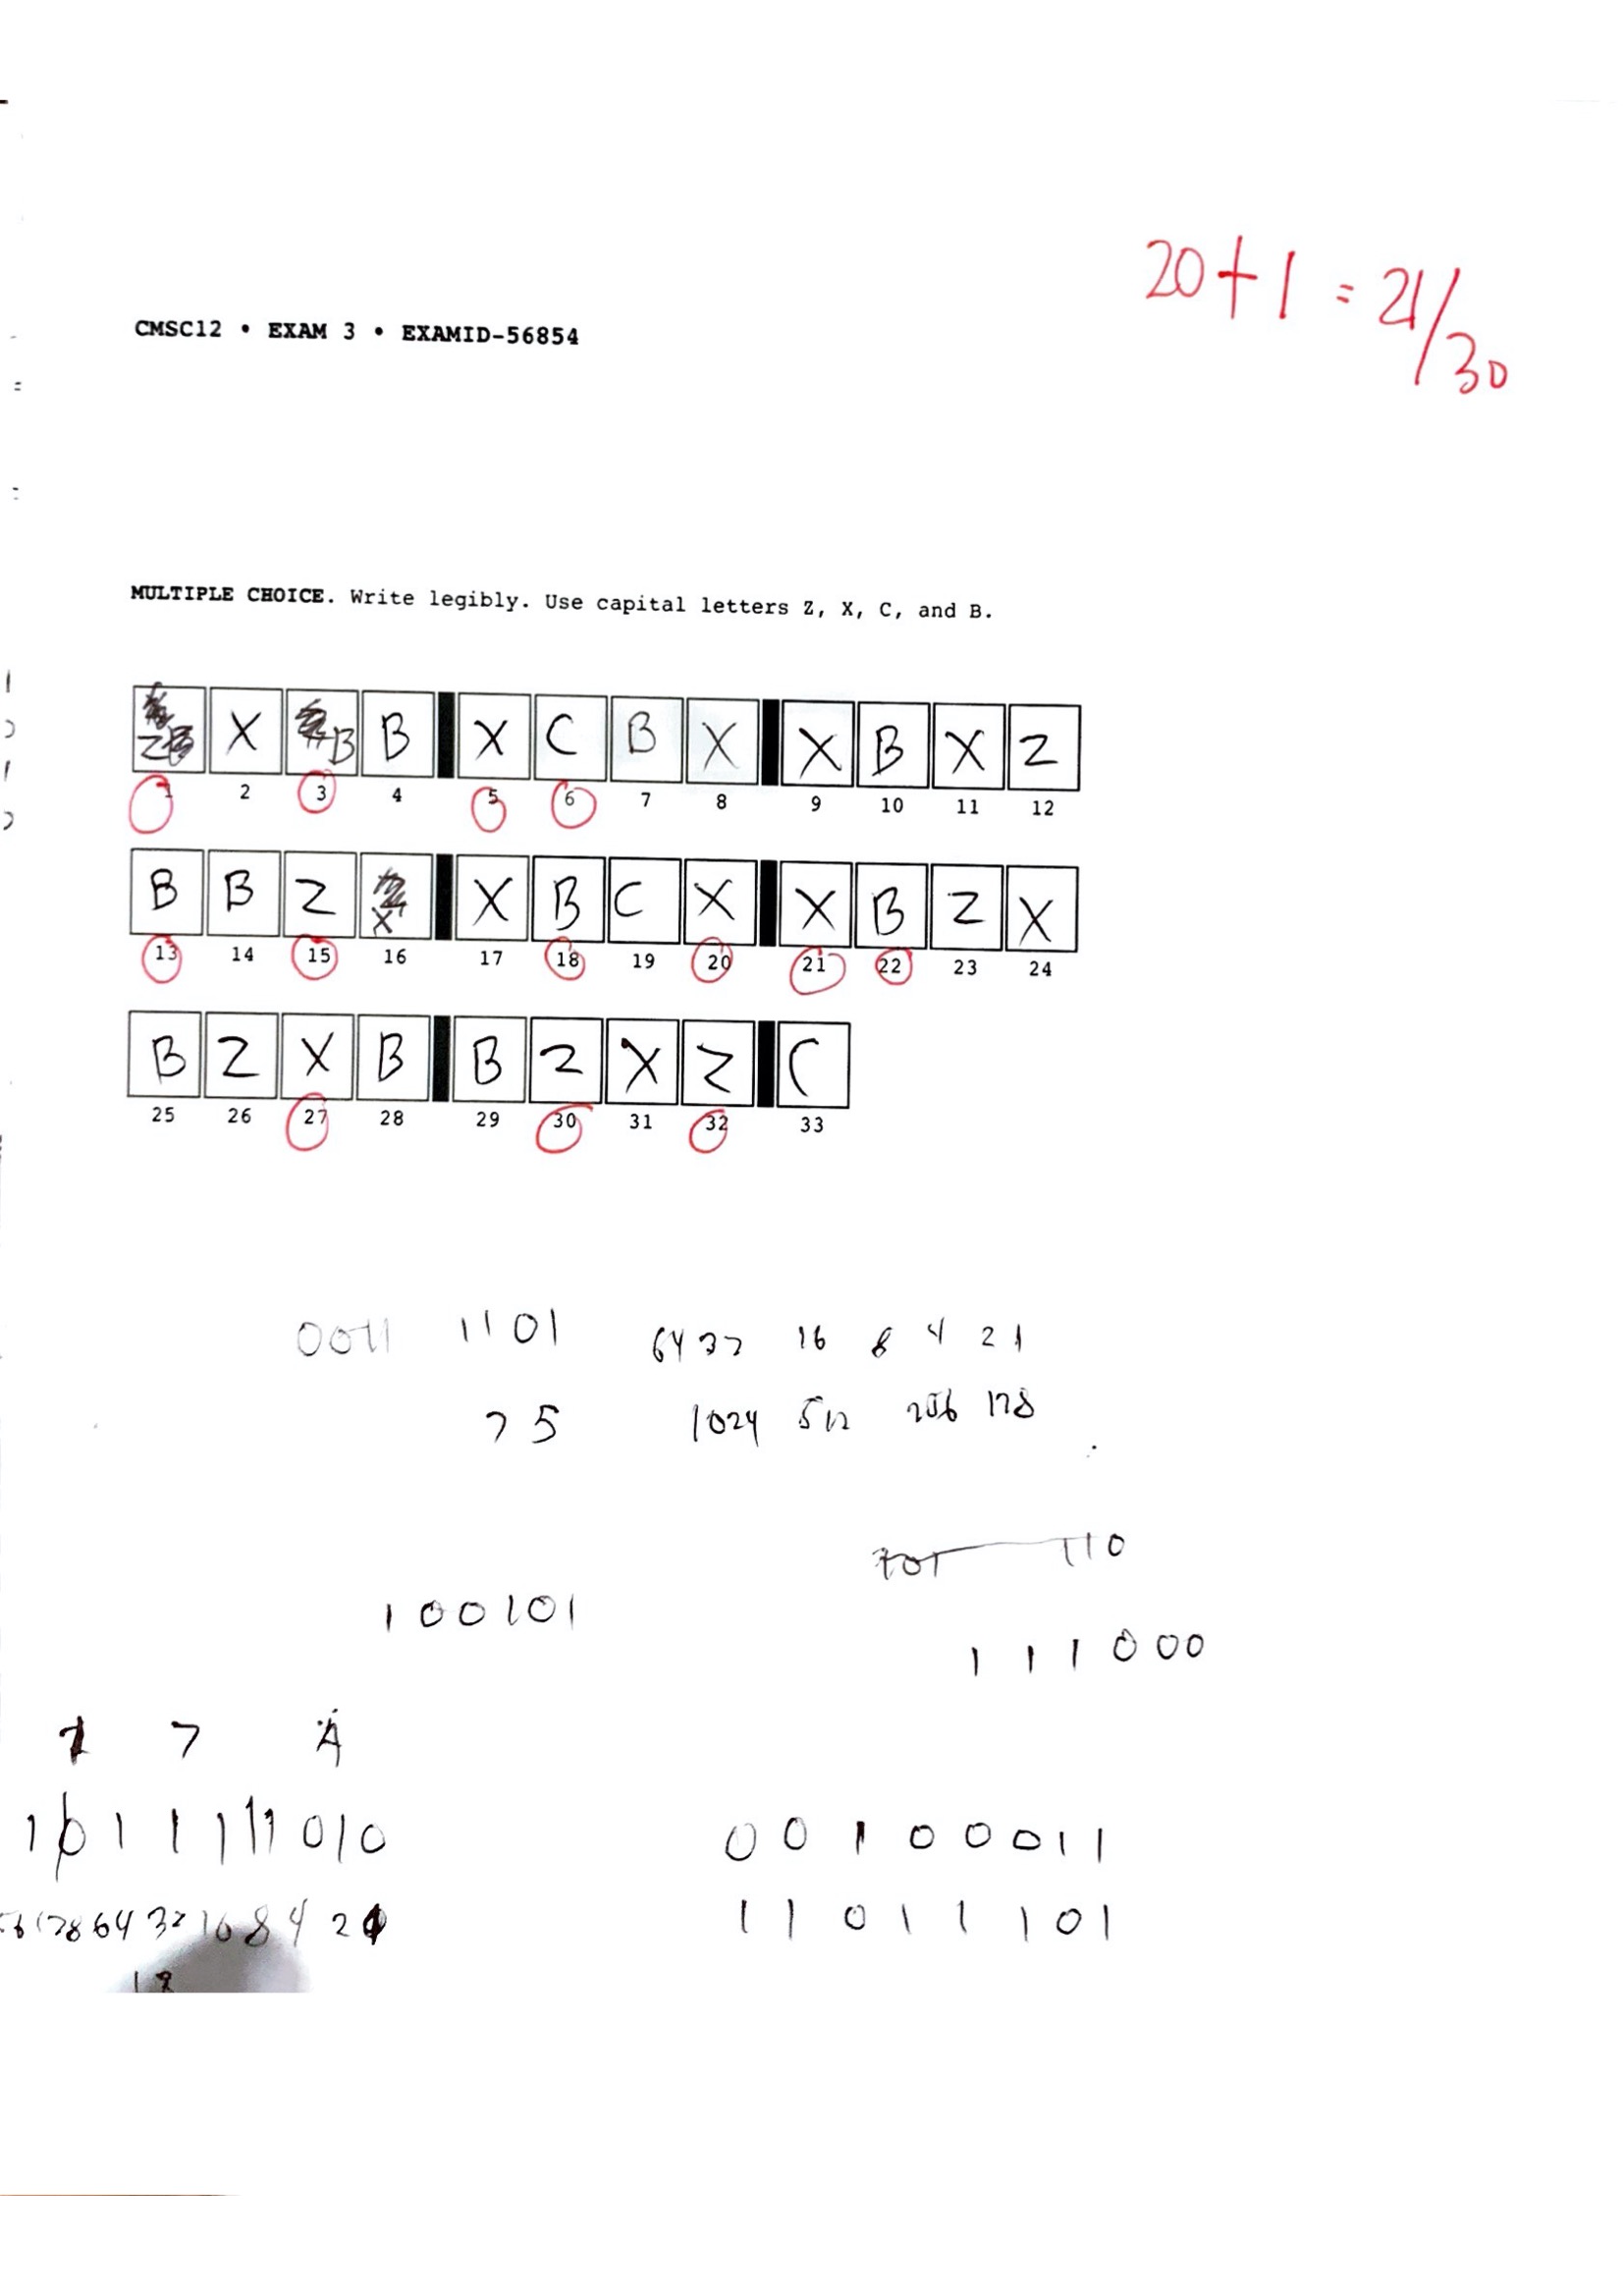 20+1 = 21/30
CMSC12 • EXAM 3 • EXAMID-56854
MULTIPLE CHOICE. Write legibly. Use capital letters Z, X, C, and B.
Z X B B X C B X X B X Z
1 2 3 4 5 6 7 8 9 10 11 12
B B Z X X B C X X B Z X
13 14 15 16 17 18 19 20 21 22 23 24
B Z X B B Z X Z C
25 26 27 28 29 30 31 32 33
0011 1101 64 32 16 8 4 2 1
75 1024 512 256 128
110
100101
111000
7 A
00100011
128 64 32 16 8 4 2
11011101